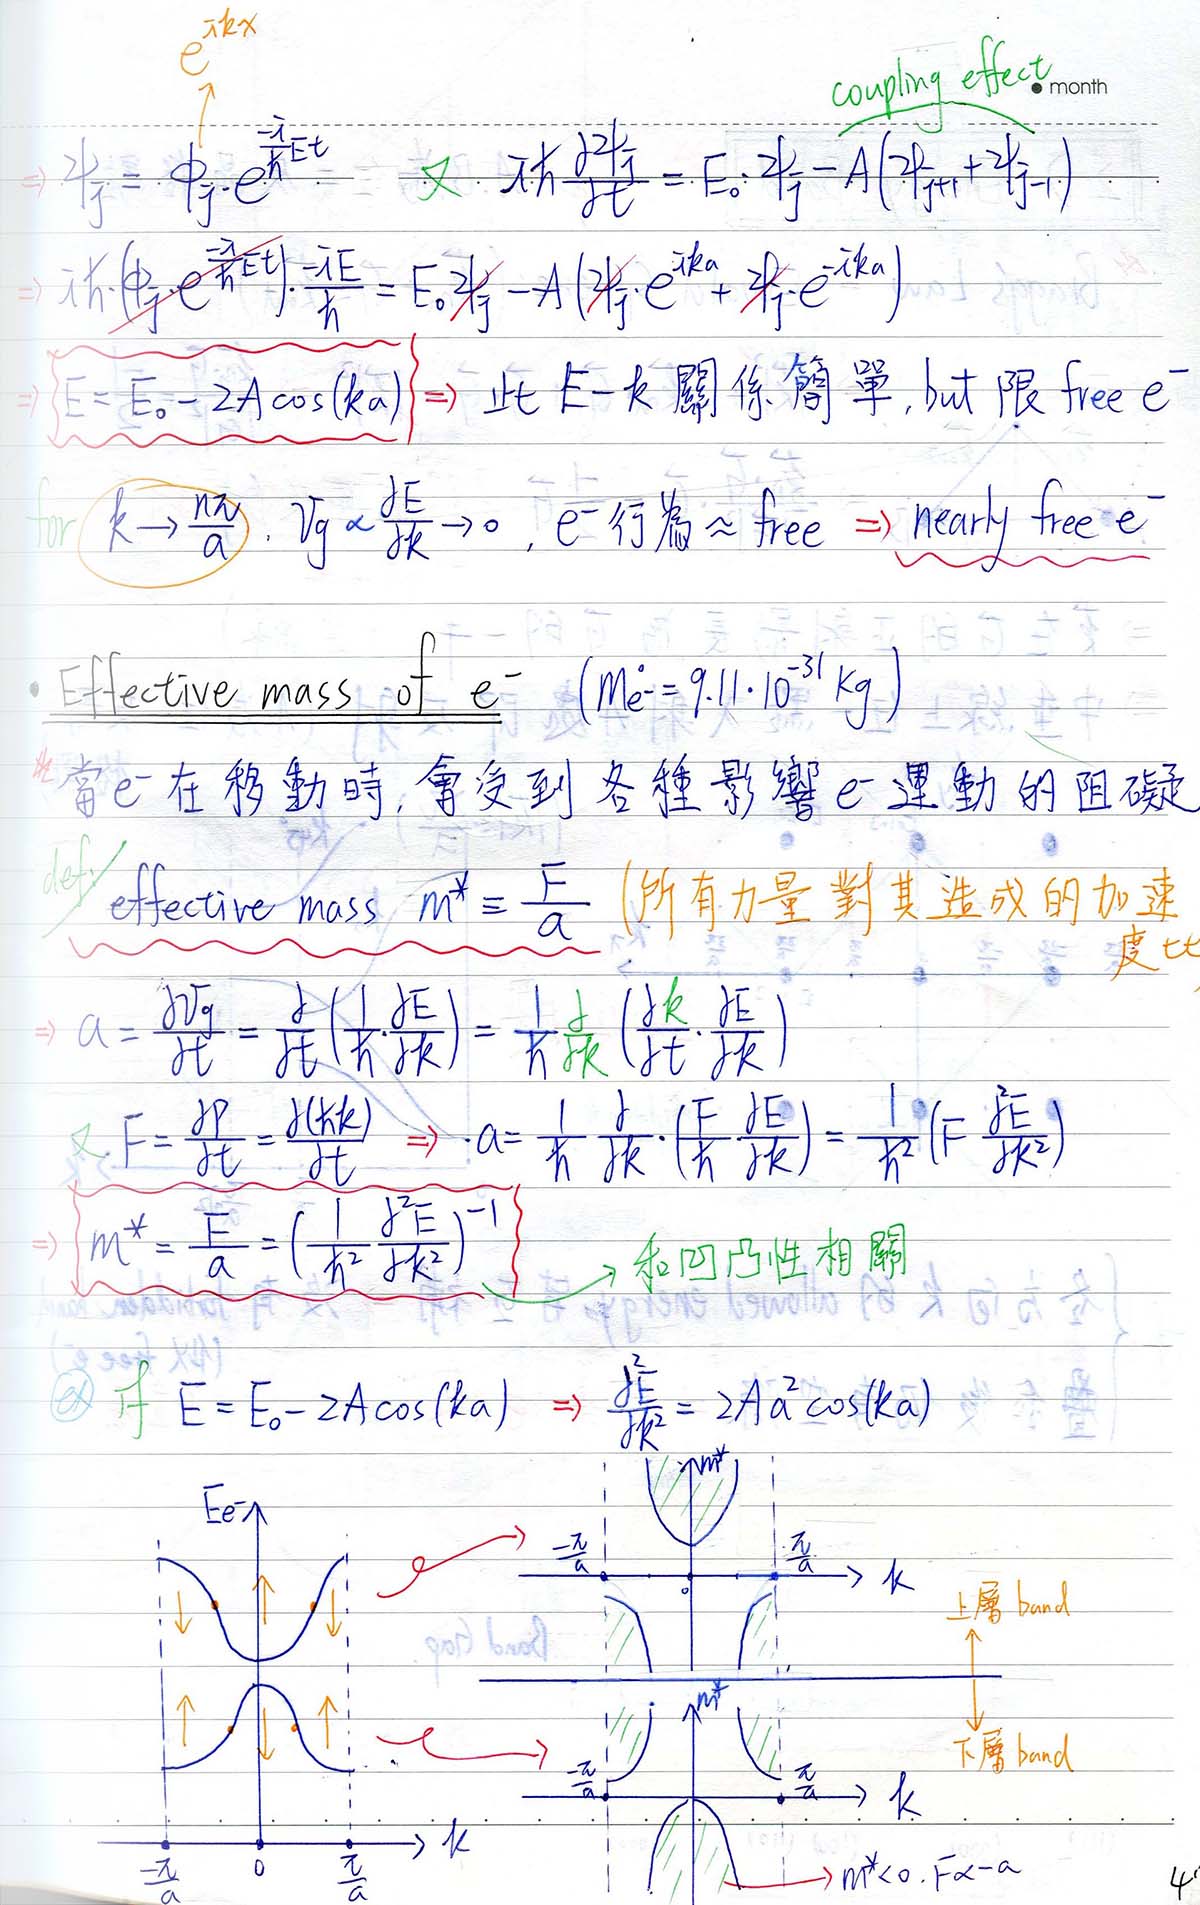 e^{ikx}
coupling effect
• month
⇒ ψ_j = φ_j·e^{-i/ħ Et} 又 iħ ∂ψ_j/∂t = E₀·ψ_j − A(ψ_{j+1} + ψ_{j-1})
⇒ iħ·(φ_j·e^{-i/ħ Et})·-iE/ħ = E₀ψ_j − A(ψ_j·e^{ika} + ψ_j·e^{-ika})
⇒ E = E₀ − 2A cos(ka) ⇒ 此 E−k 關係簡單, but 限 free e⁻
for k → nπ/a , Vg ∝ ∂E/∂k → 0 , e⁻ 行為 ≈ free ⇒ nearly free e⁻
• Effective mass of e⁻ (m°e⁻ = 9.11·10^{-31} kg)
當 e⁻ 在移動時, 會受到各種影響 e⁻ 運動的阻礙
def: effective mass m* ≡ F/a (所有力量對其造成的加速
度比
⇒ a = ∂Vg/∂t = ∂/∂t (1/ħ·∂E/∂k) = 1/ħ ∂/∂k (∂k/∂t·∂E/∂k)
又 F = ∂P/∂t = ∂(ħk)/∂t ⇒ ·a = 1/ħ ∂/∂k·(F/ħ·∂E/∂k) = 1/ħ² (F ∂²E/∂k²)
⇒ m* = F/a = (1/ħ² ∂²E/∂k²)^{-1} → 和凹凸性相關
ex if E = E₀ − 2A cos(ka) ⇒ ∂²E/∂k² = 2Aa² cos(ka)
Ee⁻
m*
-π/a
0
π/a
k
上層 band
m*
下層 band
-π/a
π/a
k
-π/a
0
π/a
k
m*<0. F∝−a
4